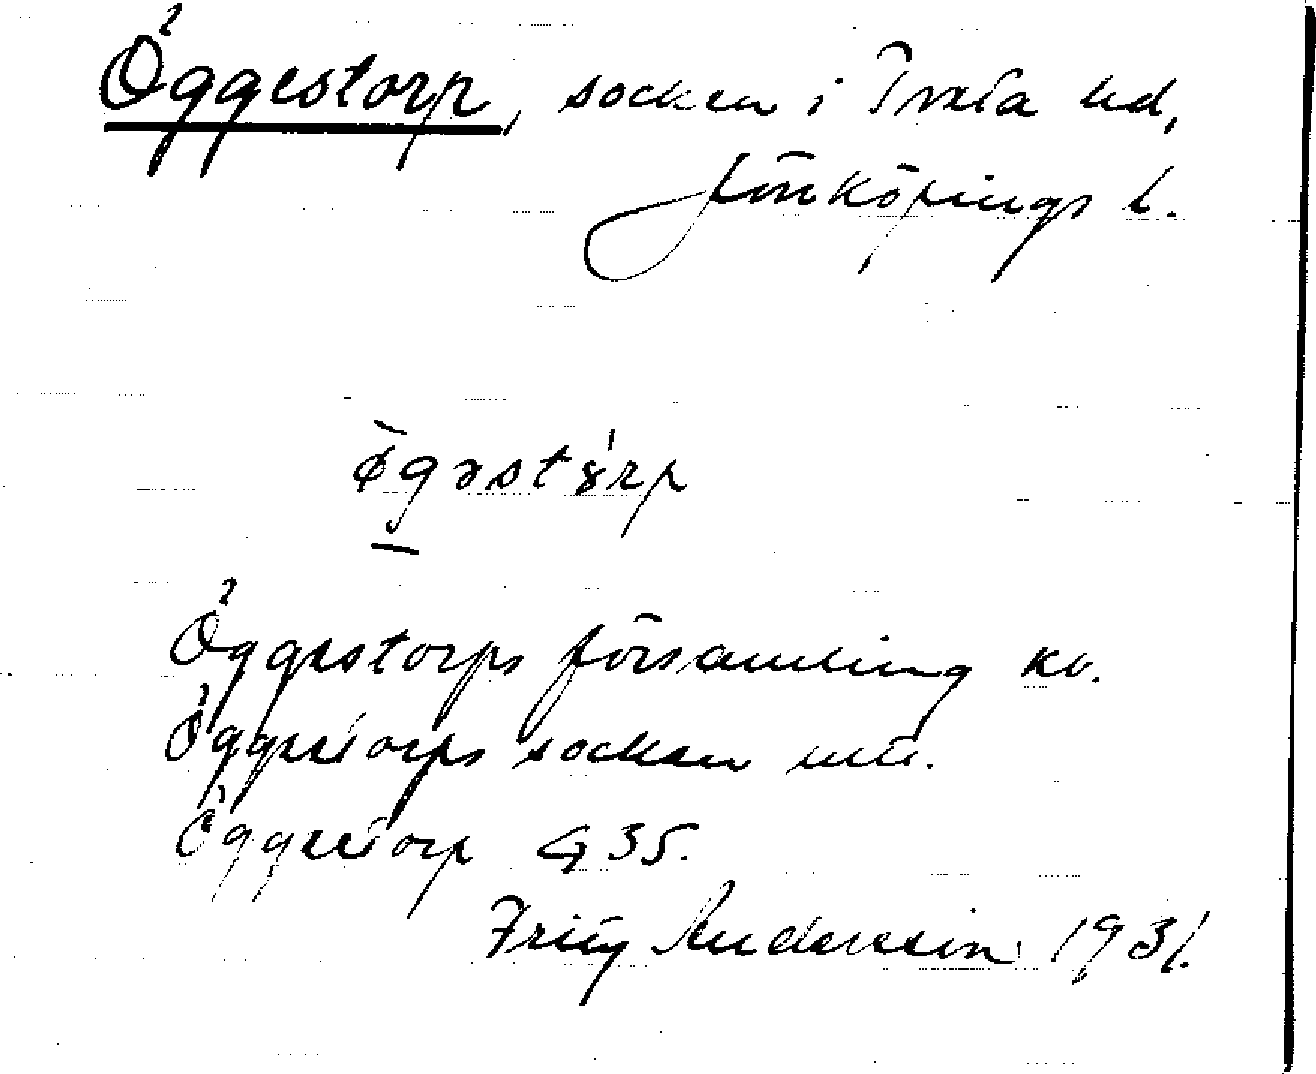 Öggestorp, socken i Tveta hd,
Jönköpings l.
Öggestorps församling kv.
Öggestorps socken
Öggestorp G 35.
Andersson 1931.